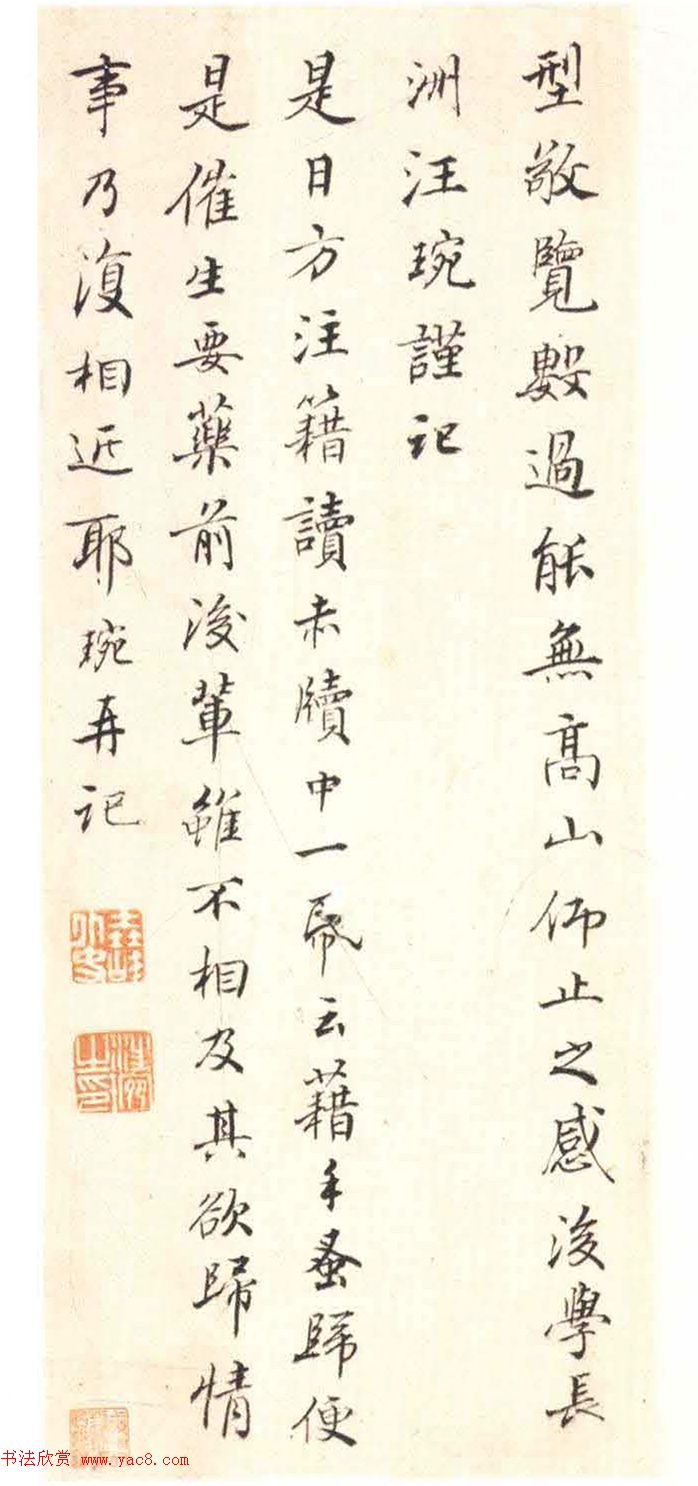 型敬覽數過能無高山仰止之感後學長
洲汪琬謹記
是日方注籍讀赤牘中一帋云藉手蚤歸便
是催生要藥前後輩雖不相及其欲歸情
事乃復相近耶琬再記
堯峰外史
汪琬之印
书法欣赏 www.yac8.com